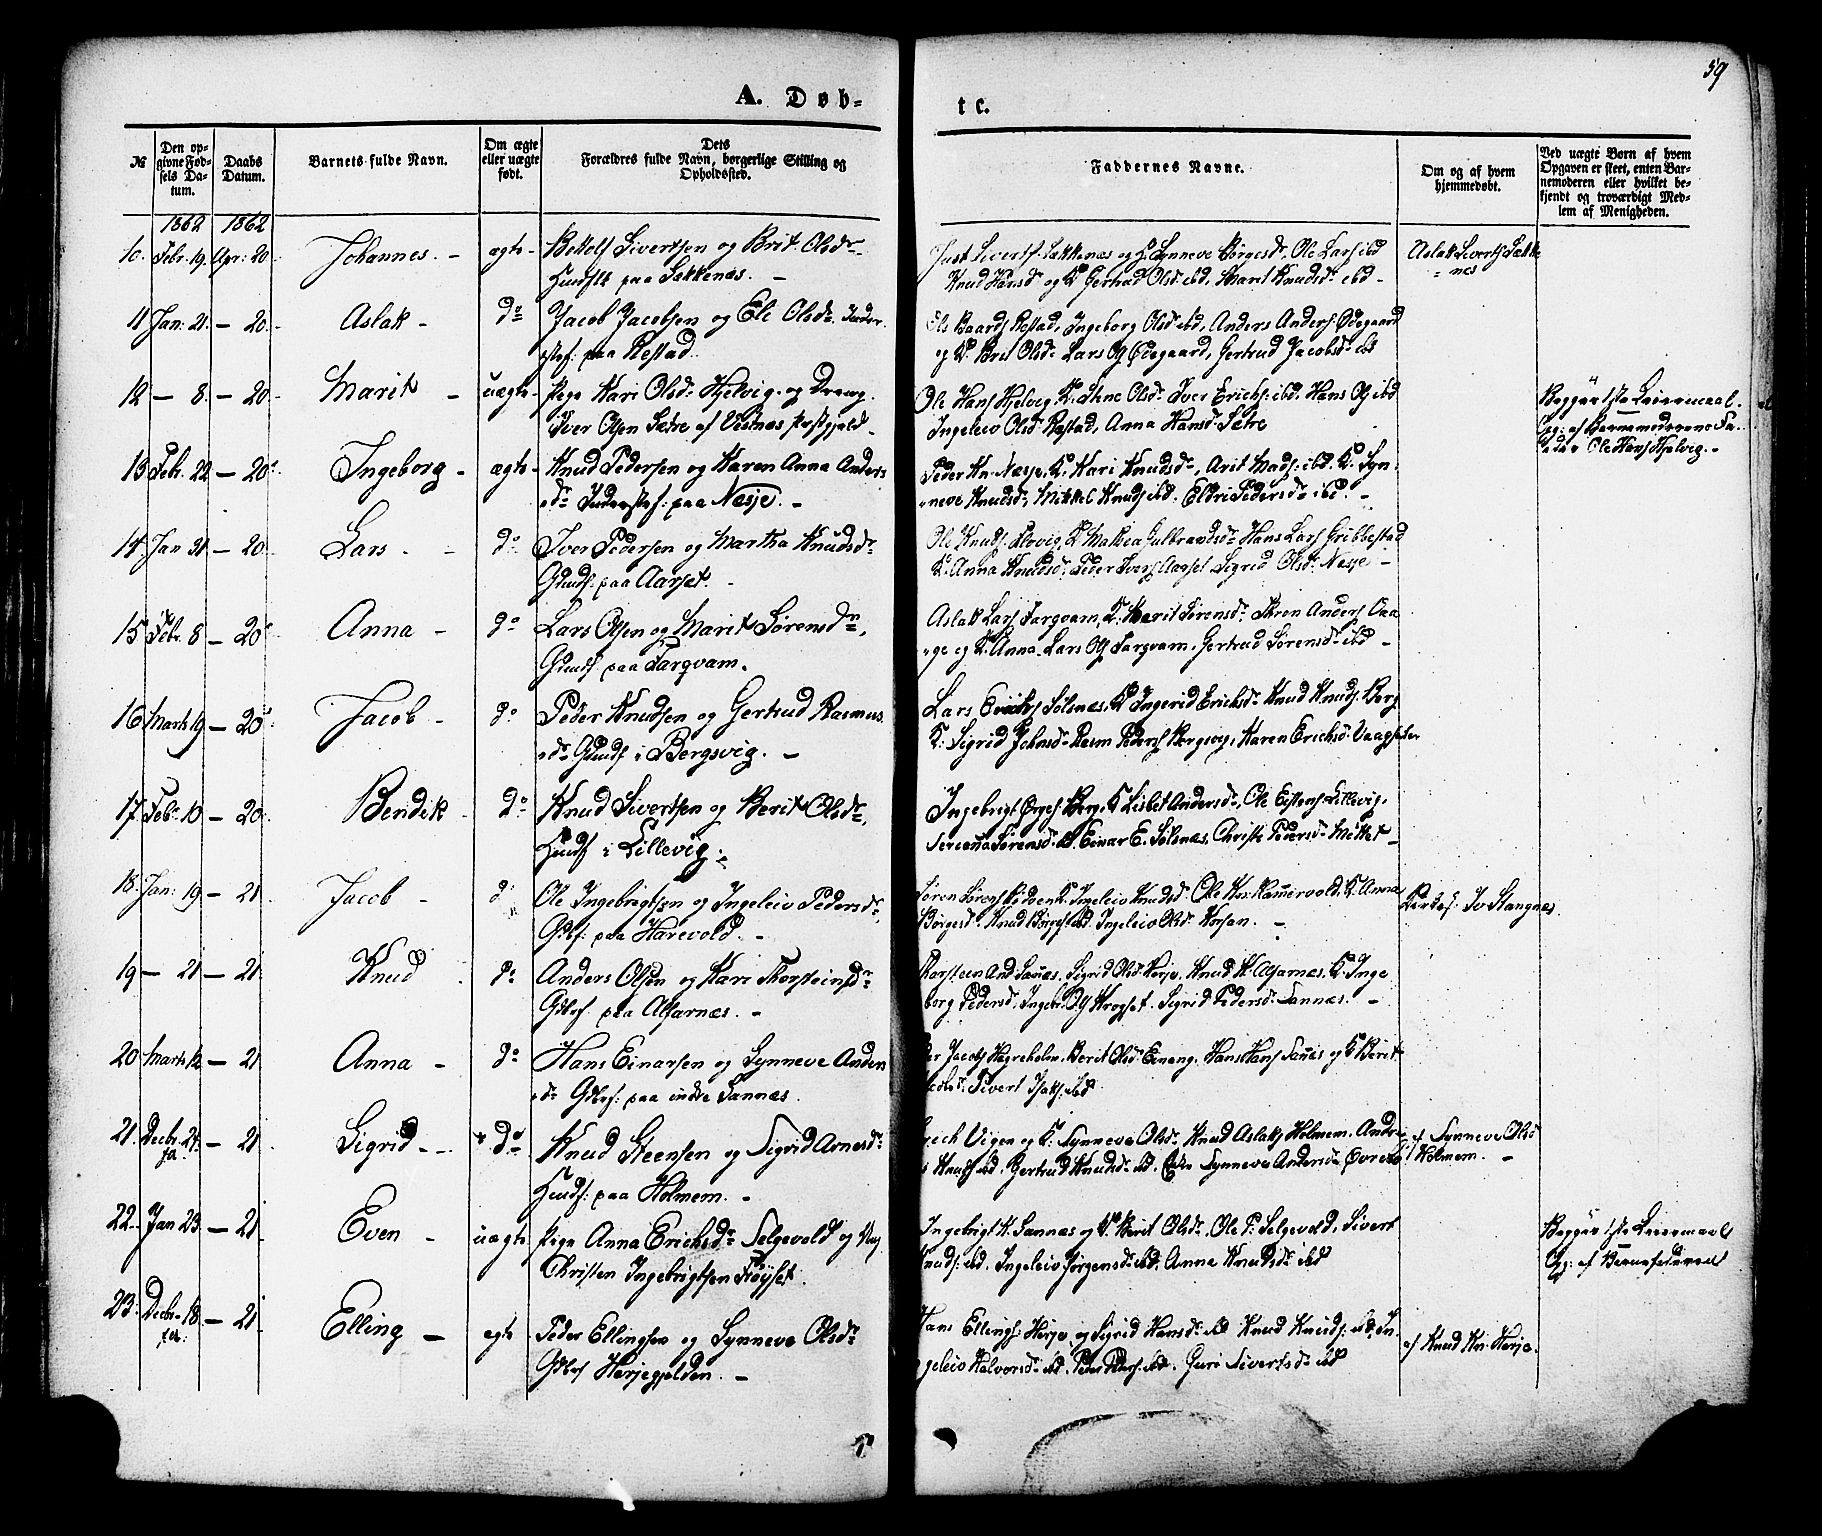 59
A. Døb-
te.
№
Den op-
givne Fød-
sels Da-
tum.
Daabs
Datum.
Barnets fulde Navn.
Om ægte
eller uægte
født.
Dets
Forældres fulde Navn, borgerlige Stilling og
Opholdssted.
Faddernes Navne.
Om og af hvem
hjemmedøbt.
Ved uægte Børn af hvem
Opgaven er skeet, enten Bar-
nemoderen eller hvilket be-
kjendt og troværdigt Med-
lem af Menigheden.
1862 1862
10. Febr. 19. Apr: 20. Johannes. - ægte- Sivertsen og Brit Olsdr
Husflk paa Sækkenæs. -
Just Siverts. Sækkenæs og Synneve Børgesdr, Ole Lars ibd
Knud Hansd og K Gertrud Olsdr ibd, Marit Knudsdr ibd -
Aslak Siverts Sække
= nes
11 Jan: 21. - 20. Aslak - do Jacob Jacobsen og Eli Olsdr. Inder
stef: paa Restad.
Baards Restad, Ingeborg Olsd ibd, Anders Anders: Ødegaard
og K. Brit Olsdr Lars Ols Ødegaard, Gertrud Jacobsdr ibd
12 - 8. - 20. Marit - uægte- Pige Kari Olsdr Hjelvig. og Dreng
Iver Olsen Sætre af Vestnæs Præstgjeld -
Ole Hans Hjelvig. K. Ane Olsdr Iver Erichs: ibd. Hans Ols ibd
Ingeleiv Olsdr Restad, Anna Hansdr Sætre
Begges 1ste Leiermaal.
Opg: af Barnemoderens Fa-
der Ole Hans Hjelvig. -
13 Febr. 22 - 20. Ingeborg - ægte- Knud Pedersen og Karen Anna Anders
dr Inderstef: paa Næsje. -
Peder Kn: Næsje. K. Kari Knudsdr, Arit Mads: ibd. K. Syn
neve Knudsdr, Mikkel Knuds ibd. Eldri Pedersdr ibd. -
14. Jan 31 - 20. Lars. - do Iver Pedersen og Martha Knudsdr
Gmds: paa Aarset. -
Ole Knuds. K Malena Gulbrandsdr Hans Lars Gribbestad
K. Anna Knudsdr, Peder Ivers Aarset Sigrid Olsdr Næsje -
15 Febr. 8 - 20 Anna - do Lars Olsen og Marit Sørensdr,
Gmds: paa Fargvam.
Aslak Lars Fargvam, K. Marit Sørensdr. Anders Vaa
ge og K. Anna Lars Ols Fargvam, Gertrud Sørensdr ibd -
16 Marts 19 - 20 Jacob - do Peder Knudsen og Gertrud Rasmus
dr Gmds i Bergsvig. -
Lars Erichs Sølsnæs, K Ingerid Erichsdr Knud Knuds. Berg
K. Sigrid Johnsdr Rasm Peders Bergsvig, Karen Erichsd Vaagsæter
17. Feb. 10 - 20 Bendik - do Knud Sivertsen og Berit Olsdr,
Husf i Lillevig. -
Ingebrigt Berg. K Lisbet Andersdr, Ole Eistens Lillevig.
Sørensdr. Einar E. Sølsnæs, Christi Pedersdr Mittet -
18. Jan: 19 - 21 Jacob - do Ole Ingebrigtsen og Ingeleiv Pedersdr,
Gbrf: paa Harevold. -
Søren Sørens K. Ingeleiv Knudsd Ole Kn: Hammervold. K. Anna
Børgesd. Knud Børges ibd Ingeleiv Olsdr Korsan. -
Iv Stangnes.
19 - 21 - 21 Knud - do Anders Olsen og Kari Thorsteinsdr
Gbrf: paa Alfarnæs. -
Thorsteen And Sanæs, Sigrid Olsdr, Knud K. Alfarnæs. K. Inge
borg Pedersd, Ingebr. Ols Krogset. Sigrid Pedersdr Sannæs. -
20 Marts 12 - 21 Anna - do Hans Einarsen og Synneve Anders
dr Gbrf: paa indre Sannæs.
Jacobs Hagreholm. Berit Olsdr Einang. Hans Hans Sanæs og K Berit
Sivert Isaks ibd
21. Decbr. 24. - 21 Sigrid - - do Knud Steensen og Sigrid Arnesdr
fa.
Husf: paa Holmem. -
Vigen og K. Synneve Olsdr Knud Aslaks Holmem. Andr
Knuds ibd. Gertrud Knudsdr ibd. Synneve Andersdr
af Synneve Olsd
Holmem. -
22. Jan 23. - 21 Even - uægte Pige Anna Erichsdr Selgevold og Ung
Christen Ingebrigtsen Frøyset.
Ingebrigt K. Sannæs og K. Berit Olsdr. Ole P. Selgevold, Sivert
Knuds: ibd. Ingeleiv Jørgensdr ibd. Anne Knudsdr ibd
Begges 1ste Leiermaal
Opg: af Barnefaderen
23: Decbr 18. - 21 Elling - ægte Peder Ellingsen og Synneve Olsdr
fa:
Gbrf Herjegjelden. -
Hans Ellings: Herje og Sigrid Hansdr ibd Knud Knuds: ibd, In
geleiv Halvorsdr ibd. Peder Peders: ibd. Guri Sivertsdr ibd
af Knud Kn: Herje.